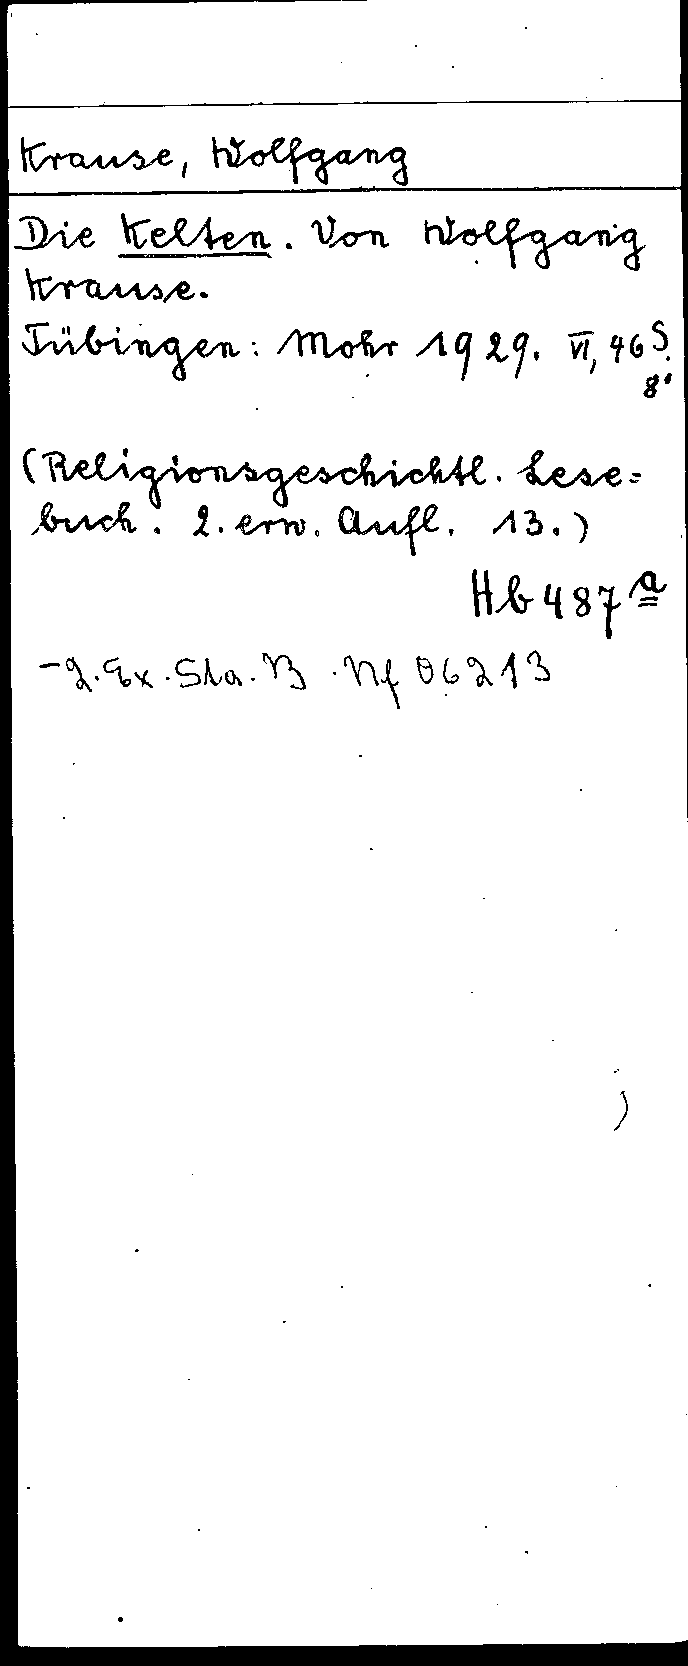 Krause, Wolfgang
Die Kelten. Von Wolfgang
Krause.
Tübingen: Mohr 1929. VI, 46 S.
8°
(Religionsgeschichtl. Lese=
buch. 2. erw. Aufl. 13.)
Hb 487 a
-2. Ex. Sta. B. Nf 06213